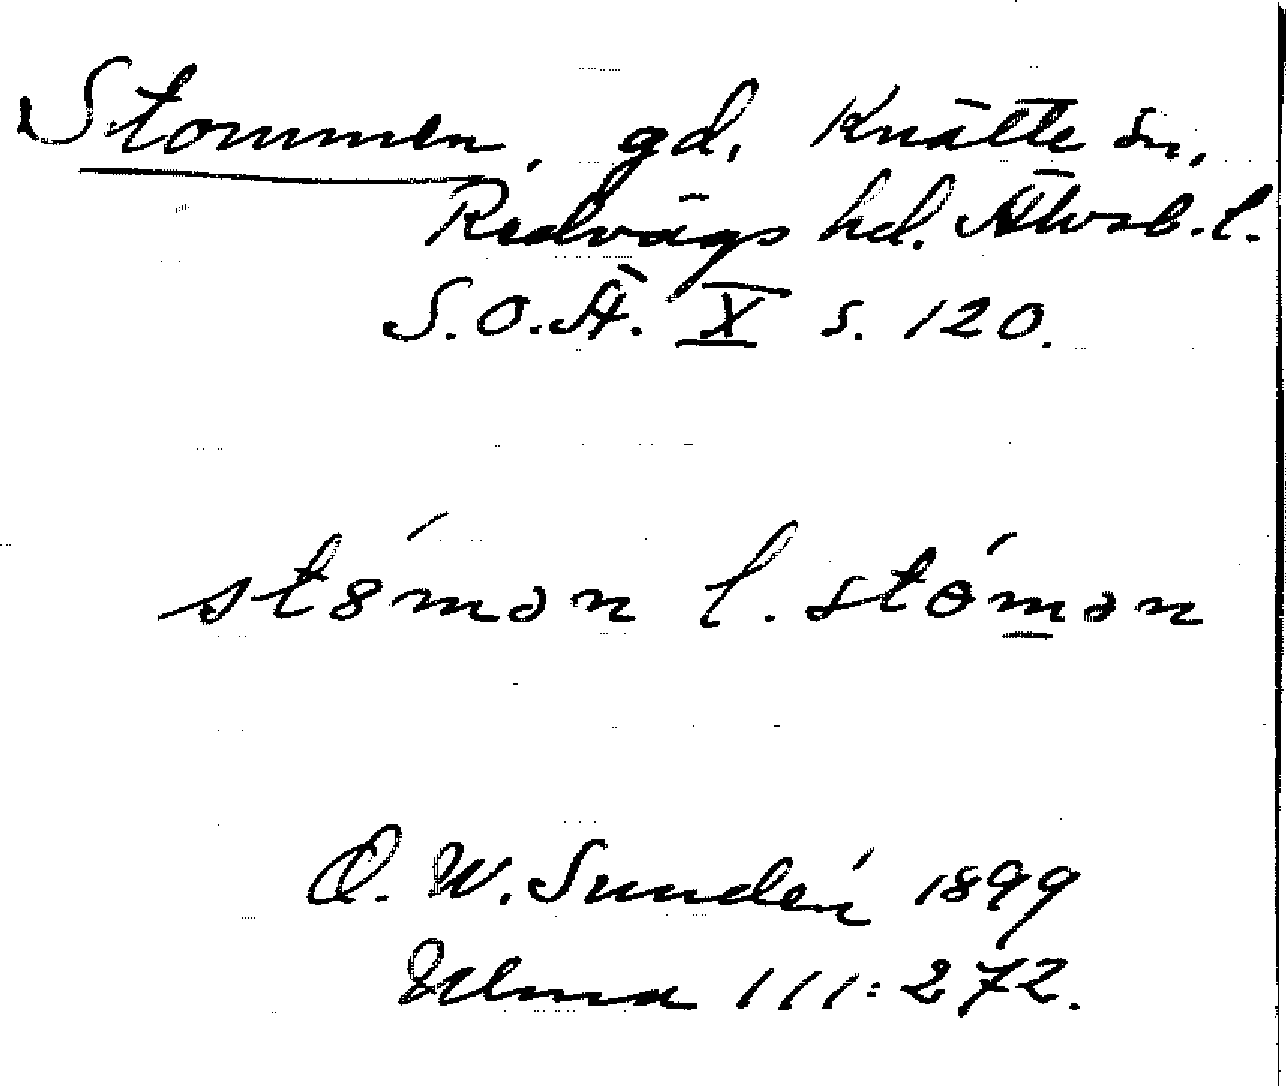 Stommen, gd, Knätte sn,
Redvägs hd. Älvsb. l.
S.O.Ä. X s. 120.
stȣ́mən l. stómən
D. W. Sundén 1899
Ulma 111:272.